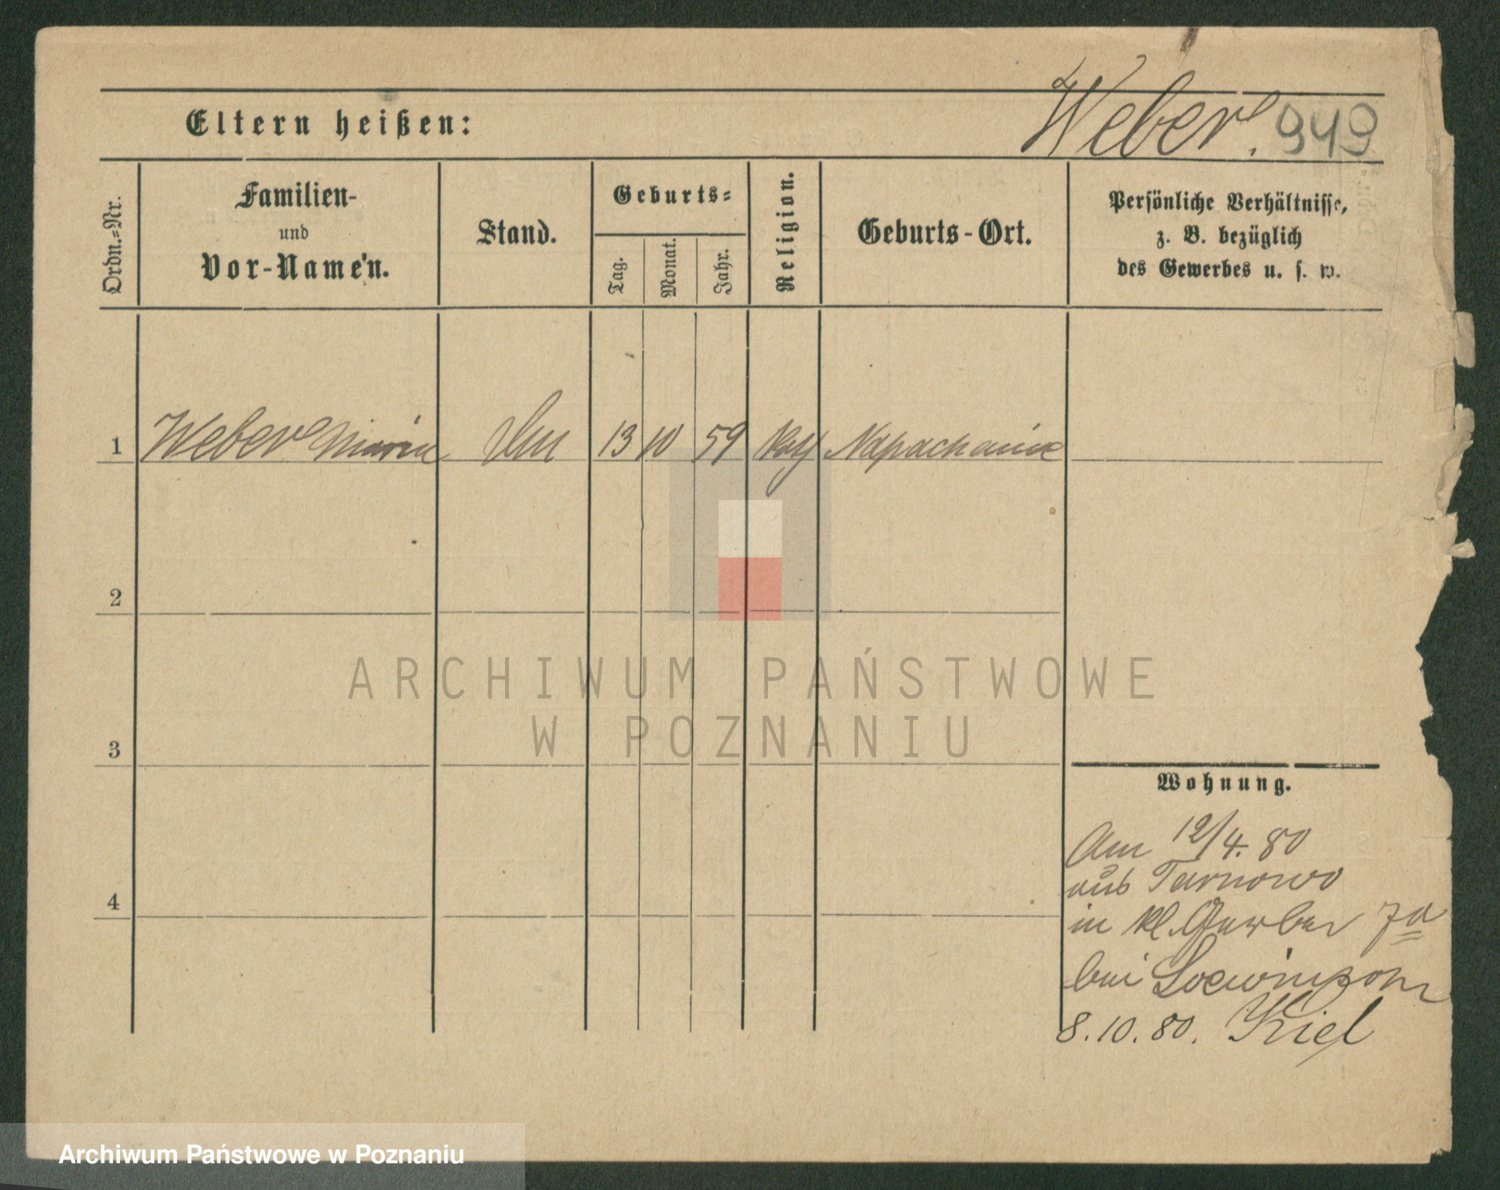 Weber. 949
Eltern heißen:
Ordn.=Nr.
Familien-
und
Vor-Namen.
Stand.
Geburts=
Tag.
Monat.
Jahr.
Religion.
Geburts-Ort.
Persönliche Verhältnisse,
z. B. bezüglich
des Gewerbes u. s. w.
1 Weber Marie 13 10 59 Napachanie
2
3
4
ARCHIWUM PAŃSTWOWE
W POZNANIU
Wohnung.
Am 12/4. 80
aus Tarnowo
in kl. Gerber 7a
bei Loewinsohn
8.10.80. Kiel
Archiwum Państwowe w Poznaniu